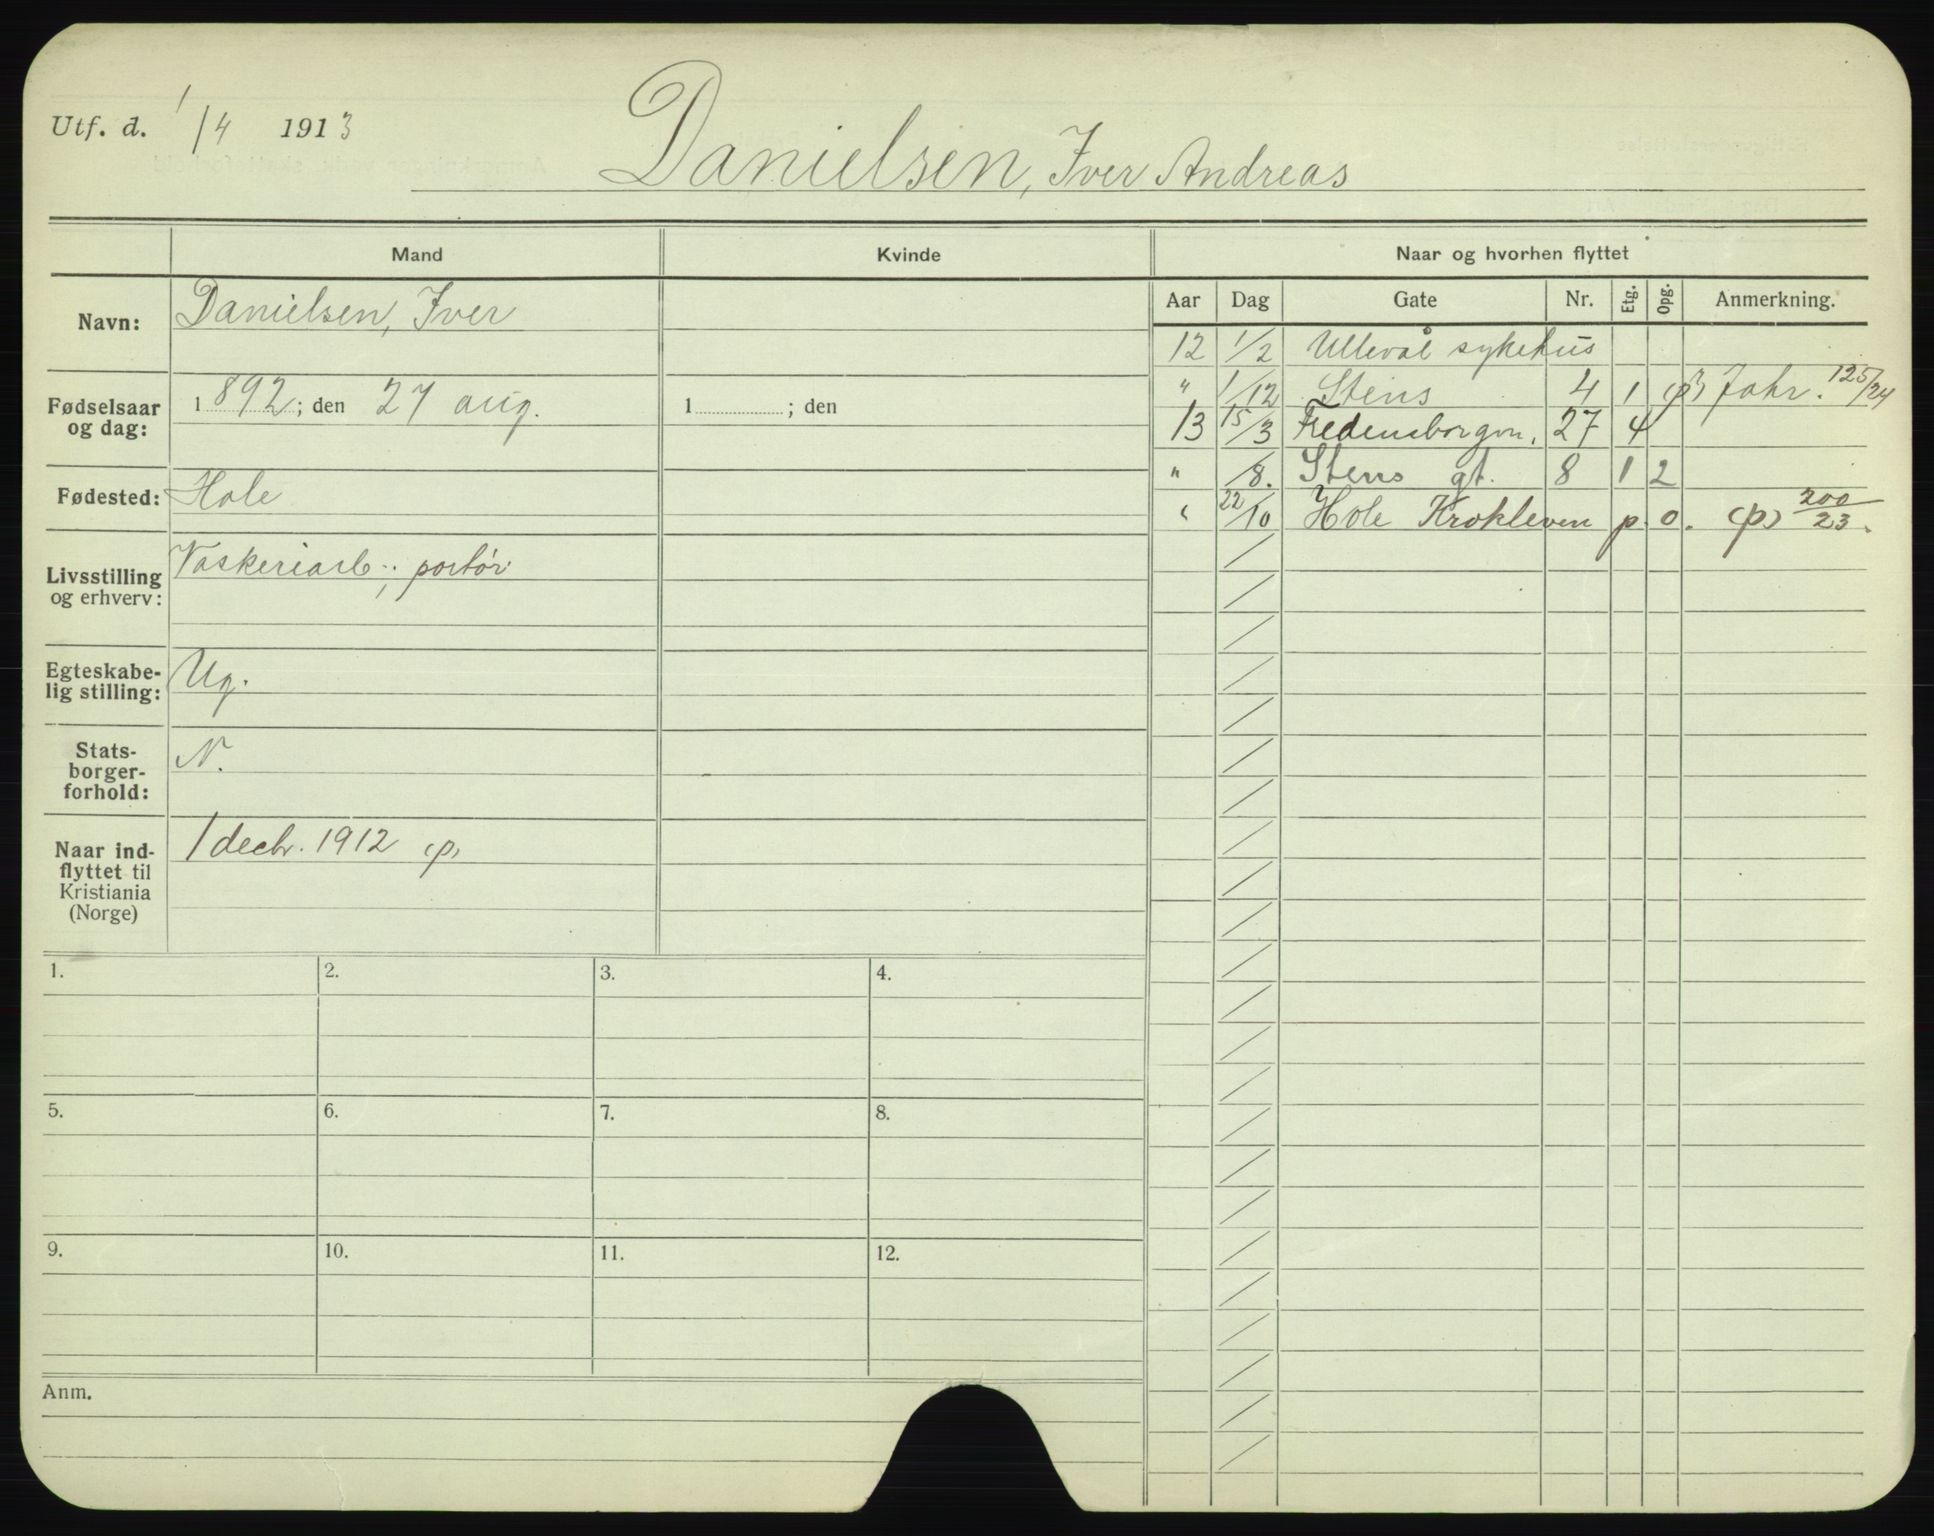 Utf. d. 1/4 1913
Danielsen, Iver Andreas
Mand
Kvinde
Naar og hvorhen flyttet
Navn:
Danielsen, Iver
Fødselsaar og dag:
1892; den 27 aug.
1 ; den
Fødested:
Hole
Livsstilling og erhverv:
Vaskeriarb.; portør
Egteskabe-
lig stilling:
Ug.
Stats-
borger-
forhold:
N.
Naar ind-
flyttet til
Kristiania
(Norge)
1 decbr. 1912 (p)
Aar Dag Gate Nr. Etg. Opg. Anmerkning.
12 1/2 Ullevål sykehus
" 1/12 Stens 4 1 (p) Johr. 125/24
13 15/3 Fredensborgvn. 27 4
" /8. Stens gt. 8 1 2
" 22/10 Hole Krokleven p.o. (p) 200/23.
1. 2. 3. 4.
5. 6. 7. 8.
9. 10. 11. 12.
Anm.